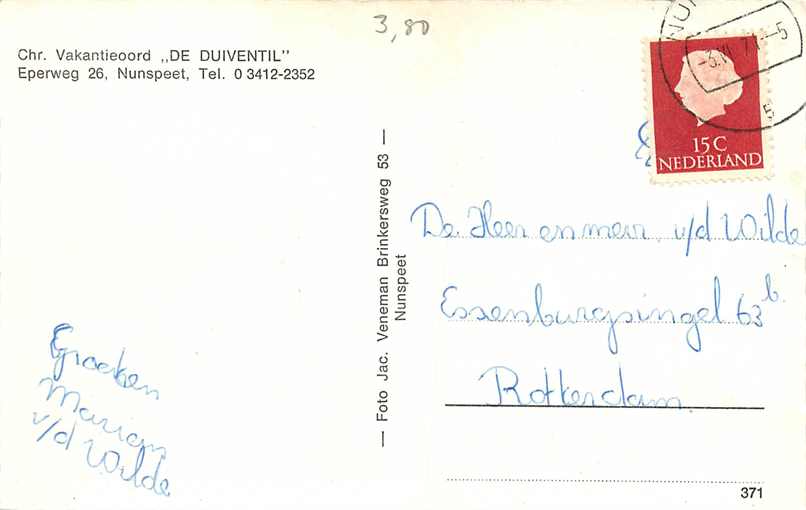 3,80
Chr. Vakantieoord „DE DUIVENTIL"
Eperweg 26, Nunspeet, Tel. 0 3412-2352
Groeten
Marian
v/d Wilde
— Foto Jac. Veneman Brinkersweg 53 —
Nunspeet
NU
-5
15C
NEDERLAND
De Heer en mevr. v/d Wilde
Essenburgsingel 63b
Rotterdam
371